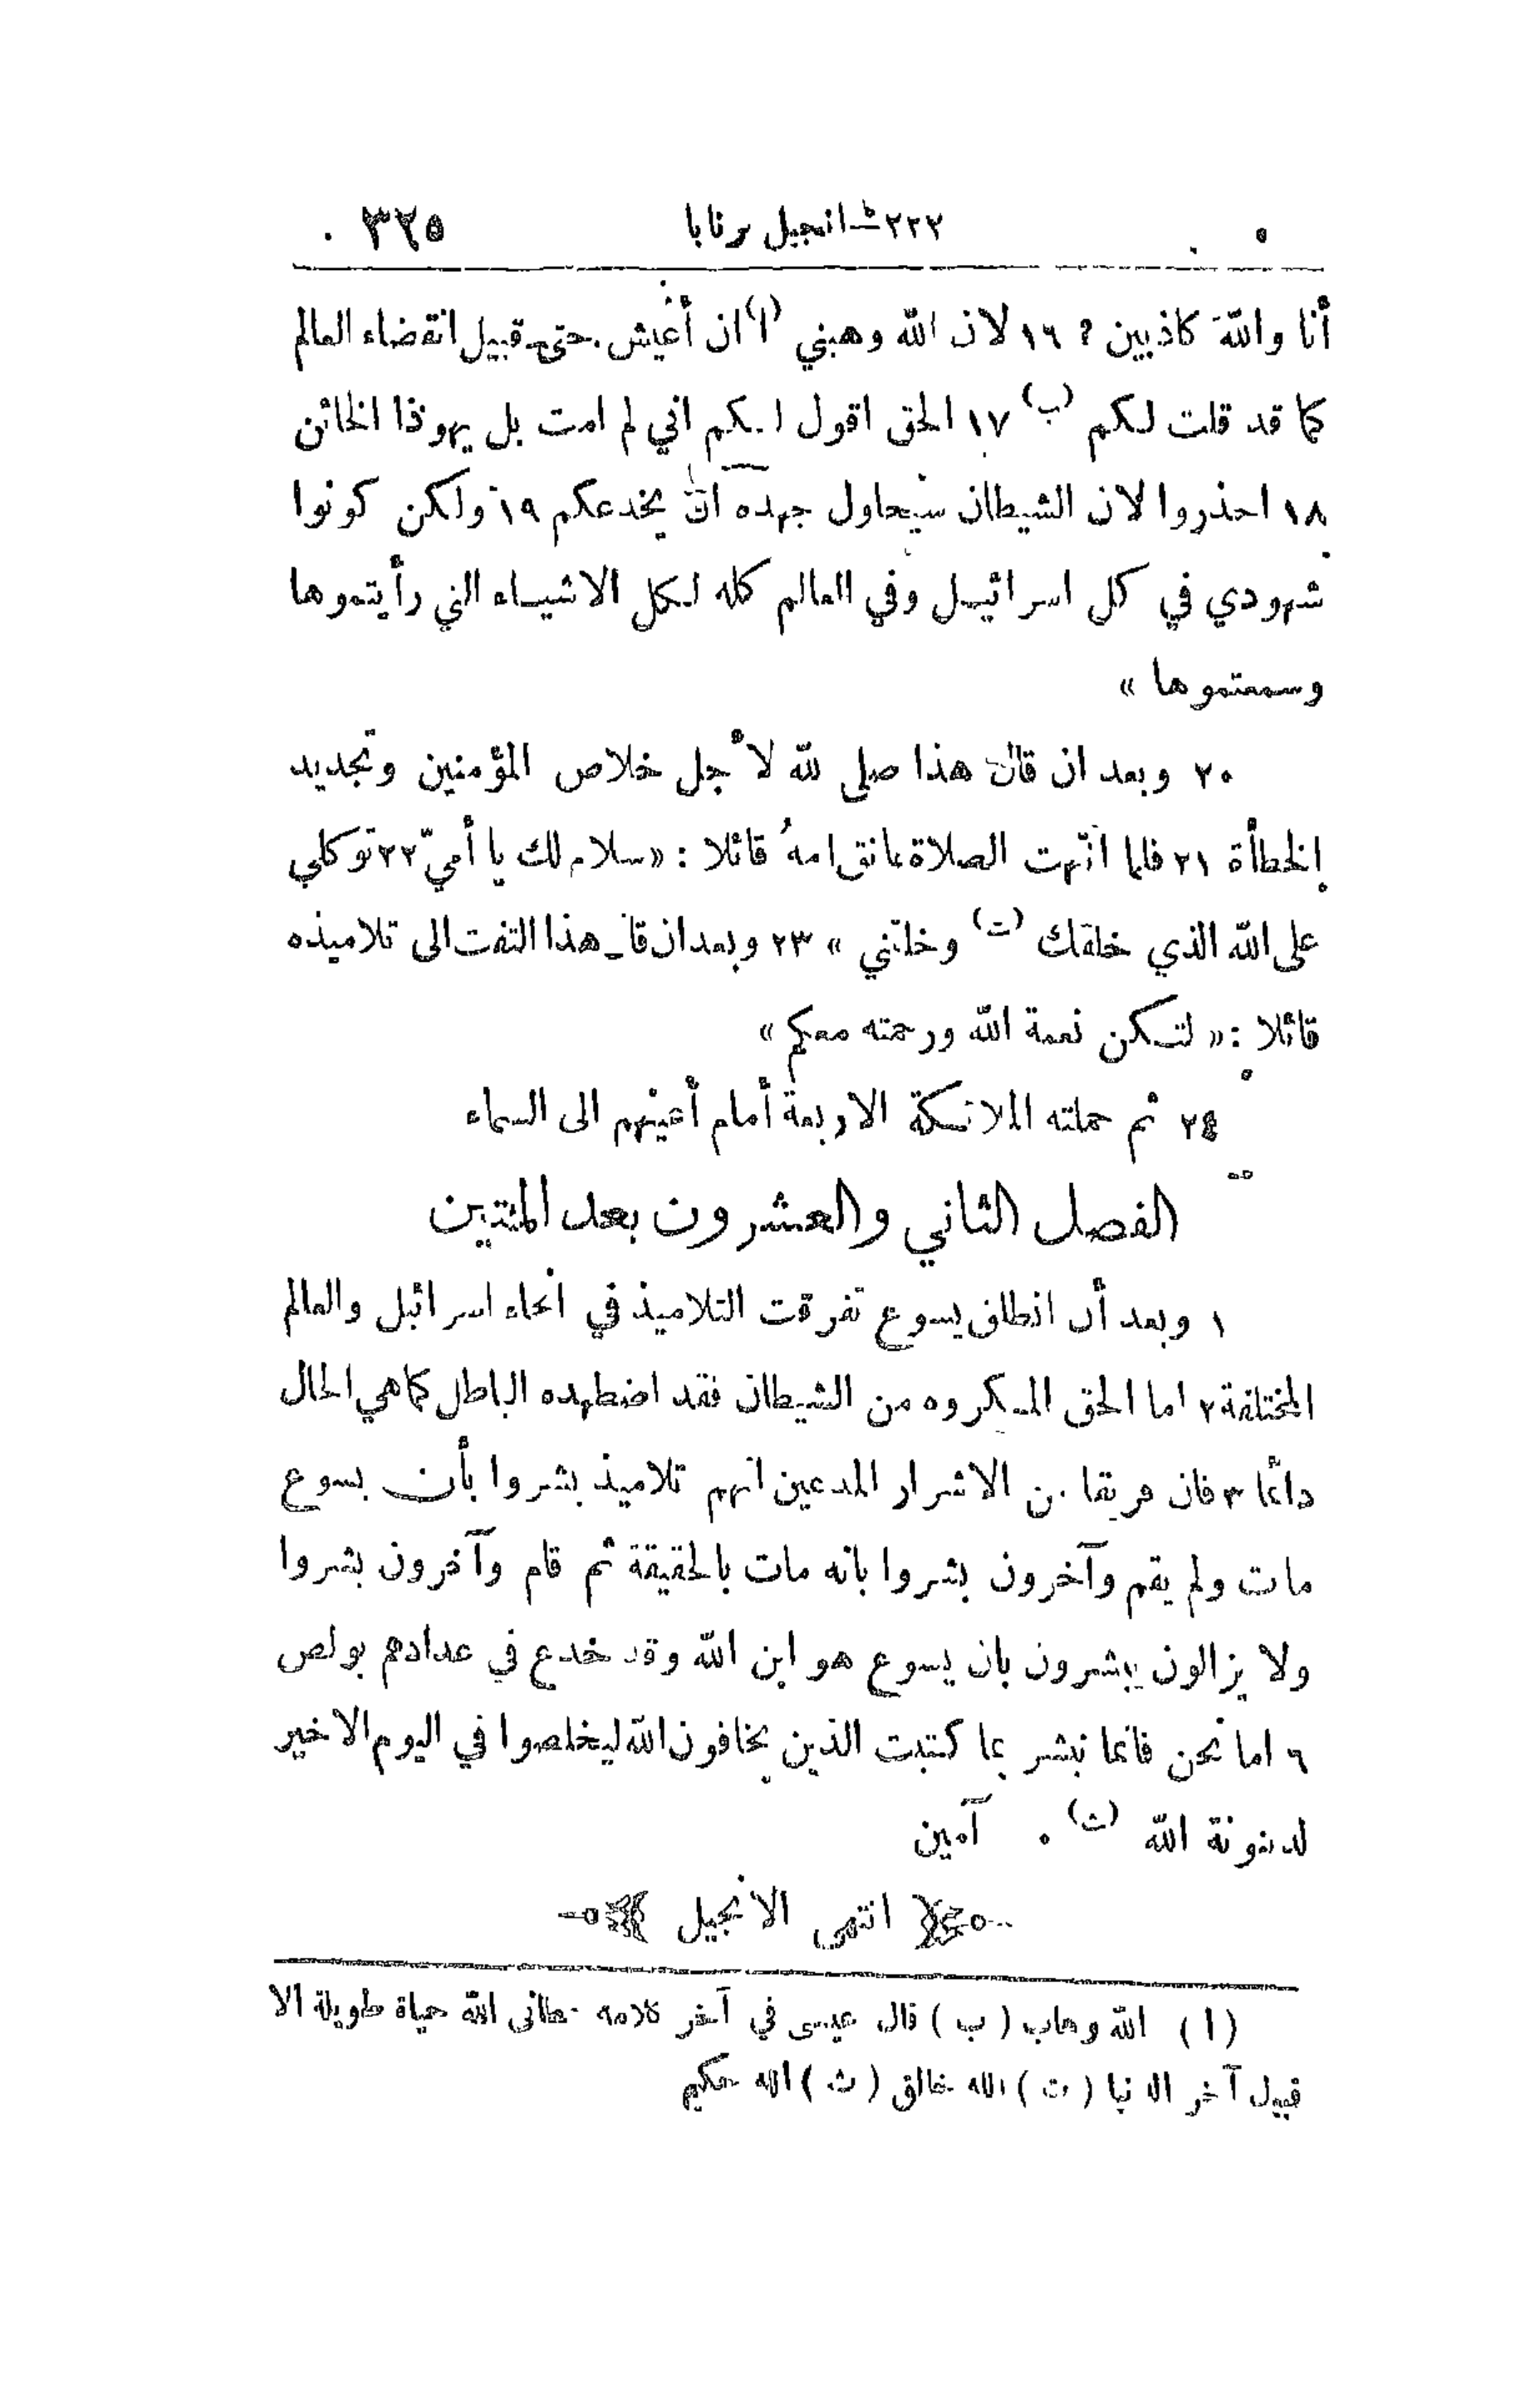 ٢٢٢ ث انجيل برنابا ٣٢٥
أنا والله كاذبين ؟ ١٦ لان الله وهبني (ا) ان أعيش حتى قبيل انقضاء العالم
كما قد قلت لكم (ب) ١٧ الحق اقول لكم اني لم امت بل يهوذا الخائن
١٨ احذروا لان الشيطان سيحاول جهده ان يخدعكم ١٩ ولكن كونوا
شهودي في كل اسرائيل وفي العالم كله لكل الاشياء التي رأيتموها
وسمعتموها »
٢٠ وبعد ان قال هذا صلى لله لأجل خلاص المؤمنين وتجديد
الخطأة ٢١ فلما انتهت الصلاة عانق امهُ قائلا : « سلام لك يا أميّ ٢٢ توكلي
على الله الذي خلقك (ت) وخلقني » ٢٣ وبعد ان قال هذا التفت الى تلاميذه
قائلا : « لتكن نعمة الله ورحمته معكم »
٢٤ ثم حملته الملائكة الاربعة أمام أعينهم الى السماء
الفصل الثاني والعشرون بعد المئتين
١ وبعد أن انطلق يسوع تفرقت التلاميذ في انحاء اسرائيل والعالم
المختلفة ٢ اما الحق المكروه من الشيطان فقد اضطهده الباطل كما هي الحال
دائما ٣ فان فريقا من الاشرار المدعين انهم تلاميذ بشروا بأن يسوع
مات ولم يقم وآخرون بشروا بانه مات بالحقيقة ثم قام وآخرون بشروا
ولا يزالون يبشرون بان يسوع هو ابن الله وقد خدع في عدادهم بولص
٦ اما نحن فانما نبشر بما كتبت الذين يخافون الله ليخلصوا في اليوم الاخير
لدينونة الله (ث) . آمين
انتهى الانجيل
(ا) الله وهاب (ب) قال عيسى في آخر كلامه الله حياة طويلة الا
قبيل آخر الدنيا (ت) الله خالق (ث) الله حكيم